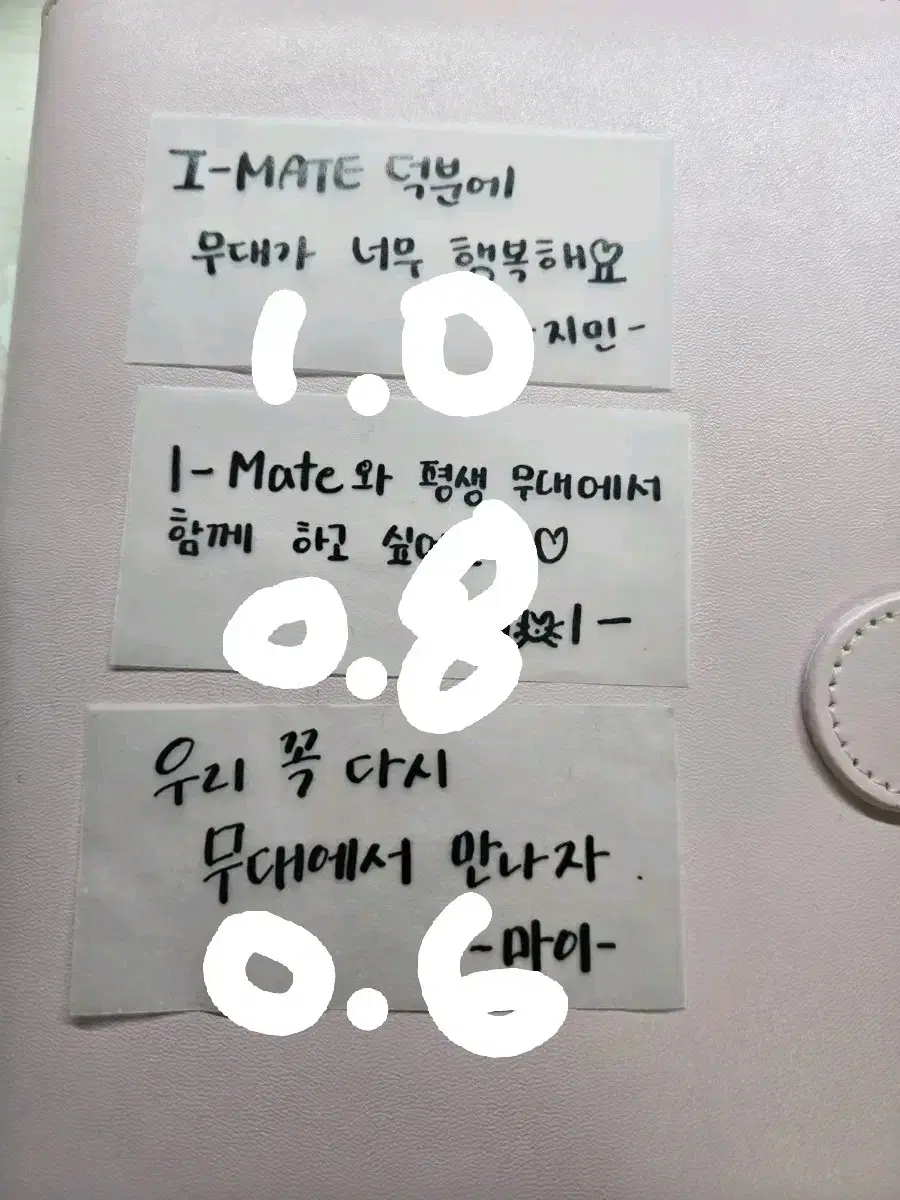 I-MATE 덕분에
무대가 너무 행복해요
1.0
-지민-
I-Mate와 평생 무대에서
함께 하고
♡
0.8
우리 꼭 다시
무대에서 만나자.
-마이-
0.6